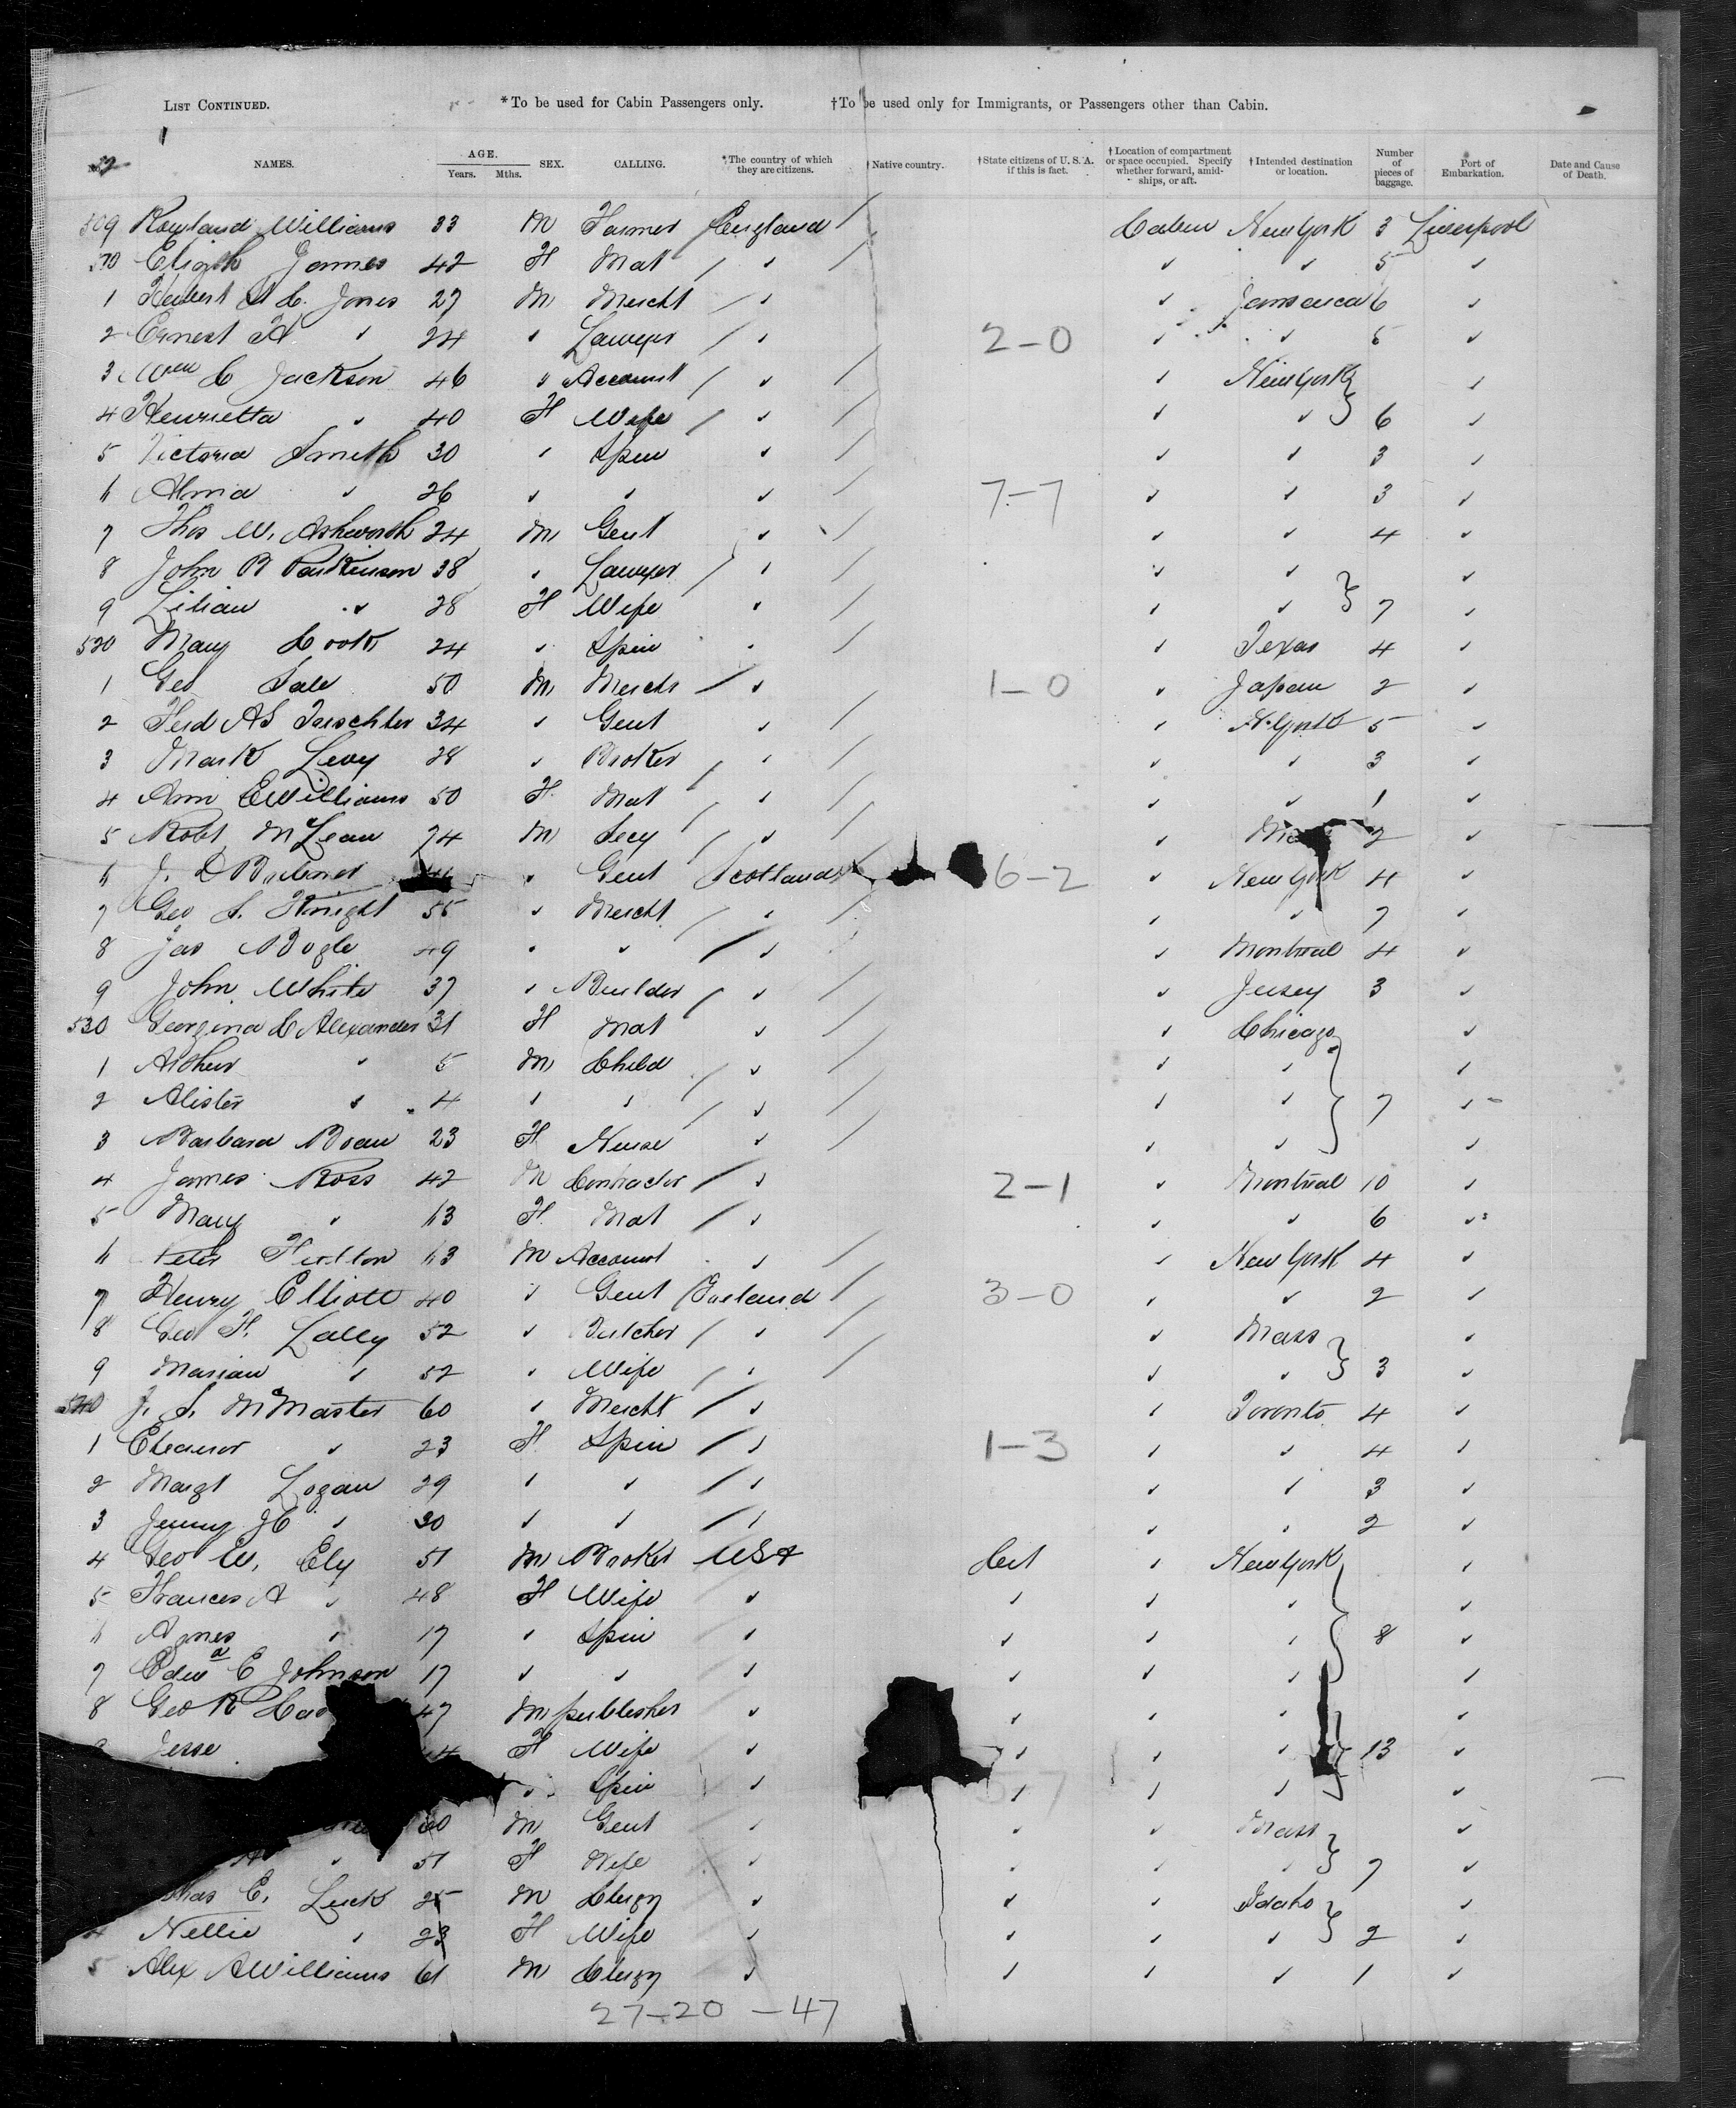 LIST CONTINUED. *To be used for Cabin Passengers only. †To be used only for Immigrants, or Passengers other than Cabin.
NAMES. AGE. Years. Mths. SEX. CALLING. *The country of which they are citizens. †Native country. †State citizens of U. S. A. if this is fact. †Location of compartment or space occupied. Specify whether forward, amidships, or aft. †Intended destination or location. Number of pieces of baggage. Port of Embarkation. Date and Cause of Death.
509 Rowland Williams 33 M Farmer England / Cabin New York 3 Liverpool
510 Elizth James 42 F Mat / " / " " 5 "
1 Hubert C. Jones 27 M Mercht / " " Jamaica 6 "
2 Ernest A " 24 " Lawyer / " 2-0 " " 5 "
3 Wm C Jackson 46 " Account / " / " New York } "
4 Henrietta " 40 F Wife / " / " " } 6 "
5 Victoria Smith 30 " Spin " / " " 3 "
6 Alma " 26 " " " / 7-7 " " 3 "
7 Thos W. Ashworth 24 M Gent " / " " 4 "
8 John B Parkinson 38 " Lawyer / " / " " } "
9 Lilian " 28 F Wife " / " " } 7 "
520 Mary Cook 24 " Spin " / " Texas 4 "
1 Geo Sale 50 M Mercht / " 1-0 " Japan 2 "
2 Ferd AS 34 " Gent " / " N. York 5 "
3 Mark Levy 28 " Broker / " / " " 3 "
4 Ann E Williams 50 F Mat / " / " " 1 "
5 Robt McLean 24 M Secy / " / " 2 "
6 J. D " Gent Scotland 6-2 " New York 4 "
7 Geo S. Knight 55 " Mercht / " / " " 7 "
8 Jas Bogle 49 " " / " " Montreal 4 "
9 John White 37 " Builder / " / " Jersey 3 "
530 Georgina C Alexander 31 F Mat " / " Chicago } "
1 Arthur " 5 M Child / " / " " } "
2 Alister " 4 " " / " / " " } 7 "
3 Barbara 23 F Nurse " / " " } "
4 James Ross 42 M Contractor / " 2-1 " Montreal 10 "
5 Mary " 63 F Mat / " " " 6 "
6 Peter Fulton 63 M Account " / " New York 4 "
7 Henry Elliott 40 " Gent Ireland / 3-0 " " 2 "
8 Geo F. Lally 52 " Butcher / " / " Mass } "
9 Marian " 52 " Wife / " / " " } 3 "
540 J. S. McMaster 60 " Mercht / " " Toronto 4 "
1 Eleanor " 23 F Spin / " 1-3 " " 4 "
2 Margt Logan 29 " " / " " " 3 "
3 Jenny " 30 " " / " " " 2 "
4 Geo W. Ely 51 M Broker USA Cit " New York } "
5 Frances A " 48 F Wife " " " " } "
6 Agnes " 17 " Spin " " " " } 8 "
7 E Johnson 17 " " " " " " } "
8 Geo R 47 M publisher " " " " } "
Jesse F Wife " " " " } 13 "
" Spin " " " " } "
60 M Gent " " " Mass } "
" 51 F Wife " " " " } 7 "
Chas E. Luck 25 M Clergy " " " Idaho } "
4 Nellie " 23 F Wife " " " " } 2 "
5 Alex A Williams 61 M Clergy " " " " 1 "
27-20 -47